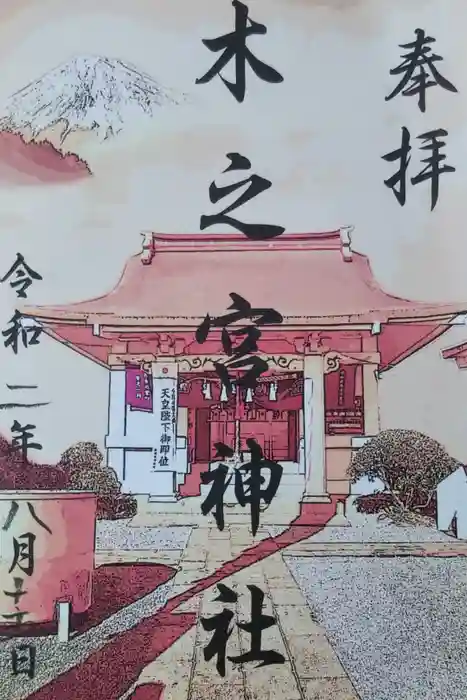 奉拝
木之宮神社
令和二年八月十一日
天皇陛下御即位